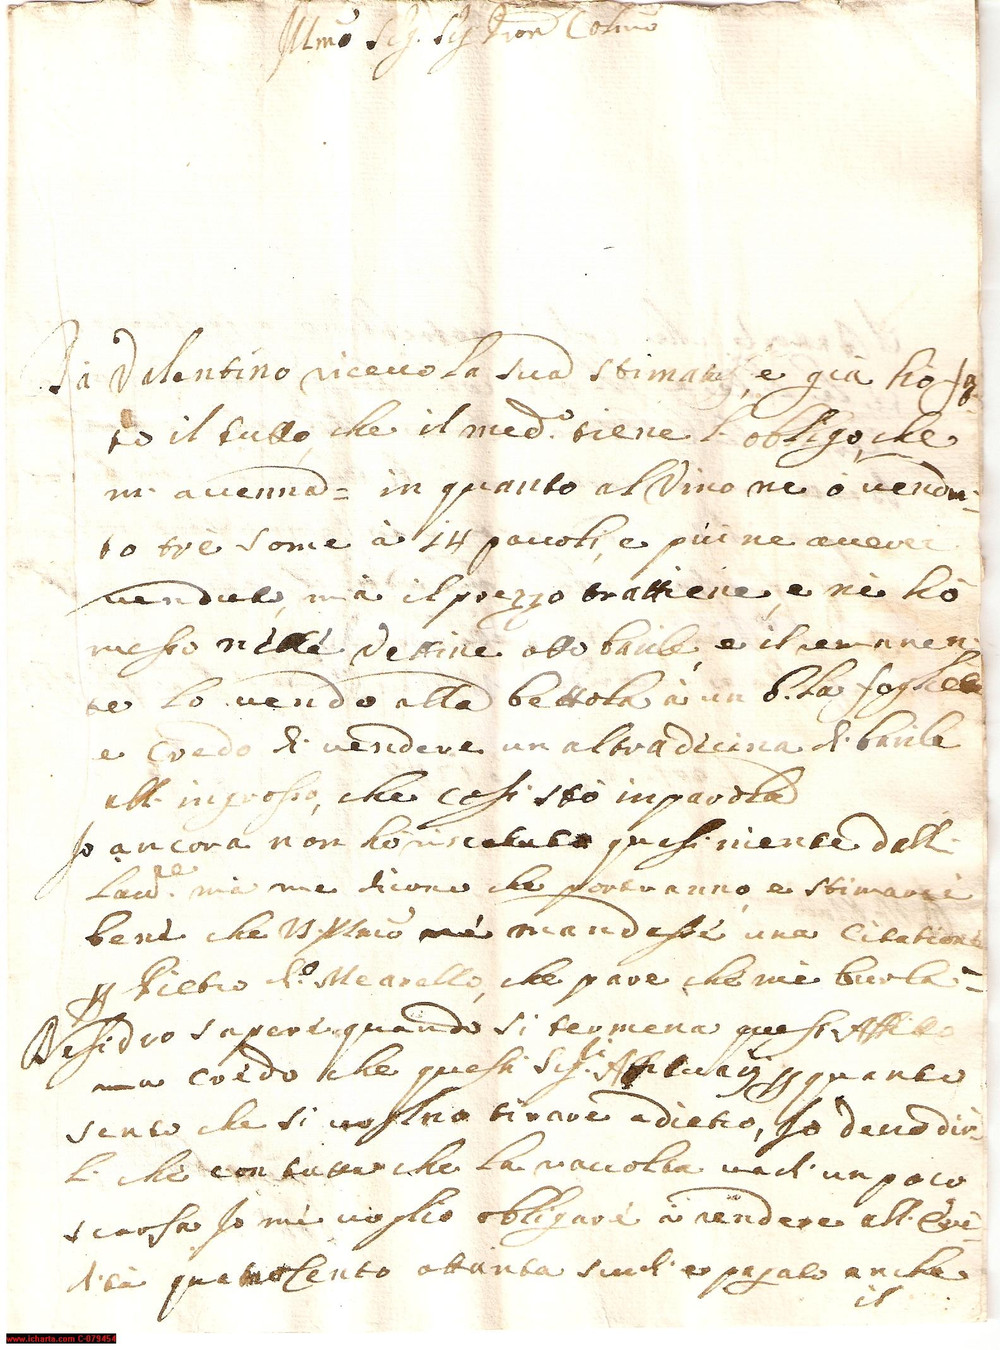 Illmo Sig. Sig Pron Colmo
Da Valentino ricevo la sua stimatа, e già hò fat
to il tutto, che il med.o tiene l. obligo, che
m. accenna = in quanto al Vino ne ò vendu=
to tre some à 14 paoli, e più ne averei
venduto, mà il prezzo trattiene, e ne hò
messo nelle Vettine otto barile, e il remanen
te lo vendo alla bettola à un b. la foglietta
e credo di vendere un altra decina di barile
all. ingrosso, che così stò in parola
Io ancora non hò riscotuto quasi niente dalli
Lau.ri mà me dicono che porteranno, e stimarei
bene che VS Illma me mandasse una Citatione
p Pietro d.o Mearello, che pare che me burla=
Desidro sapere quando si termena questi Affitto
ma credo che questi Sig.ri Affituarij p quanto
sento che si voglino tirare adietro, Io devo dir=
li che con tutto che la raccolta vadi un poco
scarsa Io me voglio obligare à rendere all. Ere=
dità quatrocento ottanta scudi e pagato anche
il
www.icharta.com C-079454